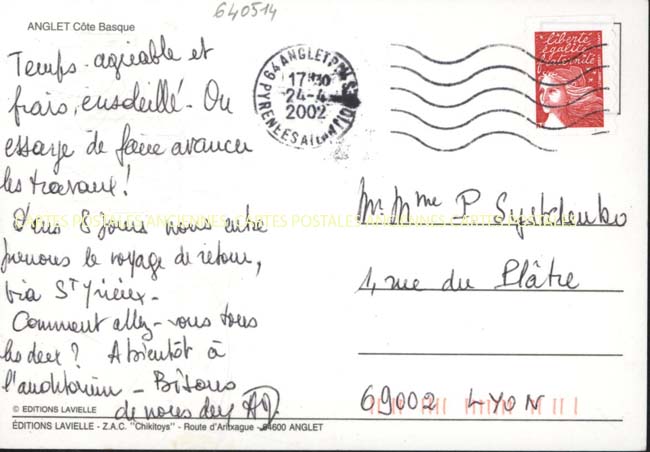 640514
ANGLET Côte Basque
Temps agréable et
frais, ensoleillé. On
essaye de faire avancer
les travaux!
Dans 8 jours nous entre
prenons le voyage de retour,
via St Yrieix -
Comment allez-vous tous
les deux? A bientôt à
l'auditorium - Bisous
de nous deux
64 ANGLET PPAL
17H30
24-4
2002
PYRENEES ATLANTIQUES
liberté
égalité
fraternité
Mr Mme P
1, rue du Plâtre
69002 LYON
CARTES POSTALES ANCIENNES CARTES POSTALES ANCIENNES CARTES POSTALES
© EDITIONS LAVIELLE
ÉDITIONS LAVIELLE - Z.A.C. "Chikitoys" - Route d'Aritxague - 64600 ANGLET